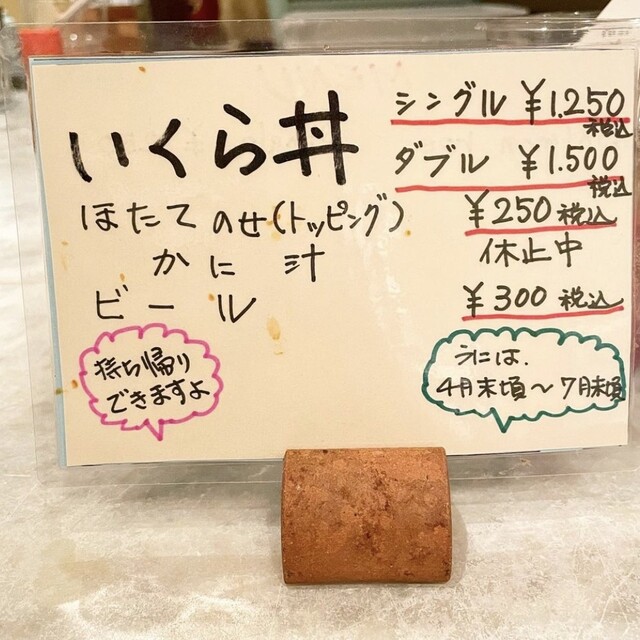 いくら丼
シングル ¥1.250 税込
ダブル ¥1.500 税込
ほたてのせ(トッピング) ¥250 税込
かに汁 休止中
ビール ¥300 税込
持ち帰り
できますよ
うには、
4月末頃～7月末頃